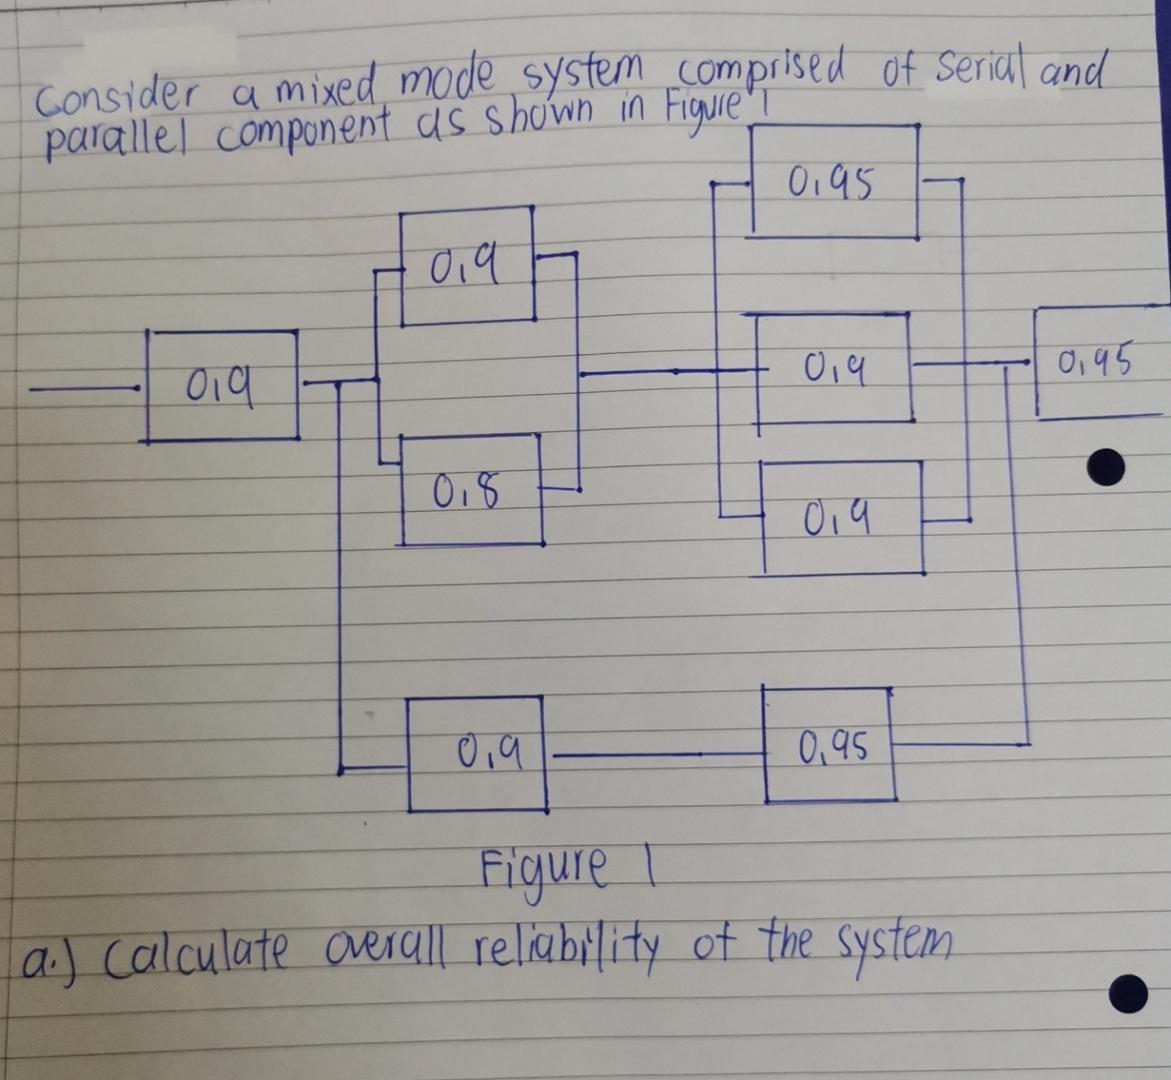 Consider a mixed mode system comprised of serial and
parallel component as shown in Figure 1
0,95
0,9
0,9
0,9
0,95
0,8
0,9
0,9
0,95
Figure 1
a.) Calculate overall reliability of the system